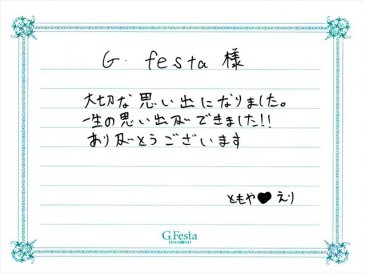 G. festa 様
大切な思い出になりました。
一生の思い出ができました!!
ありがとうございます
ともや♥えり
G.Festa
DIAMOND